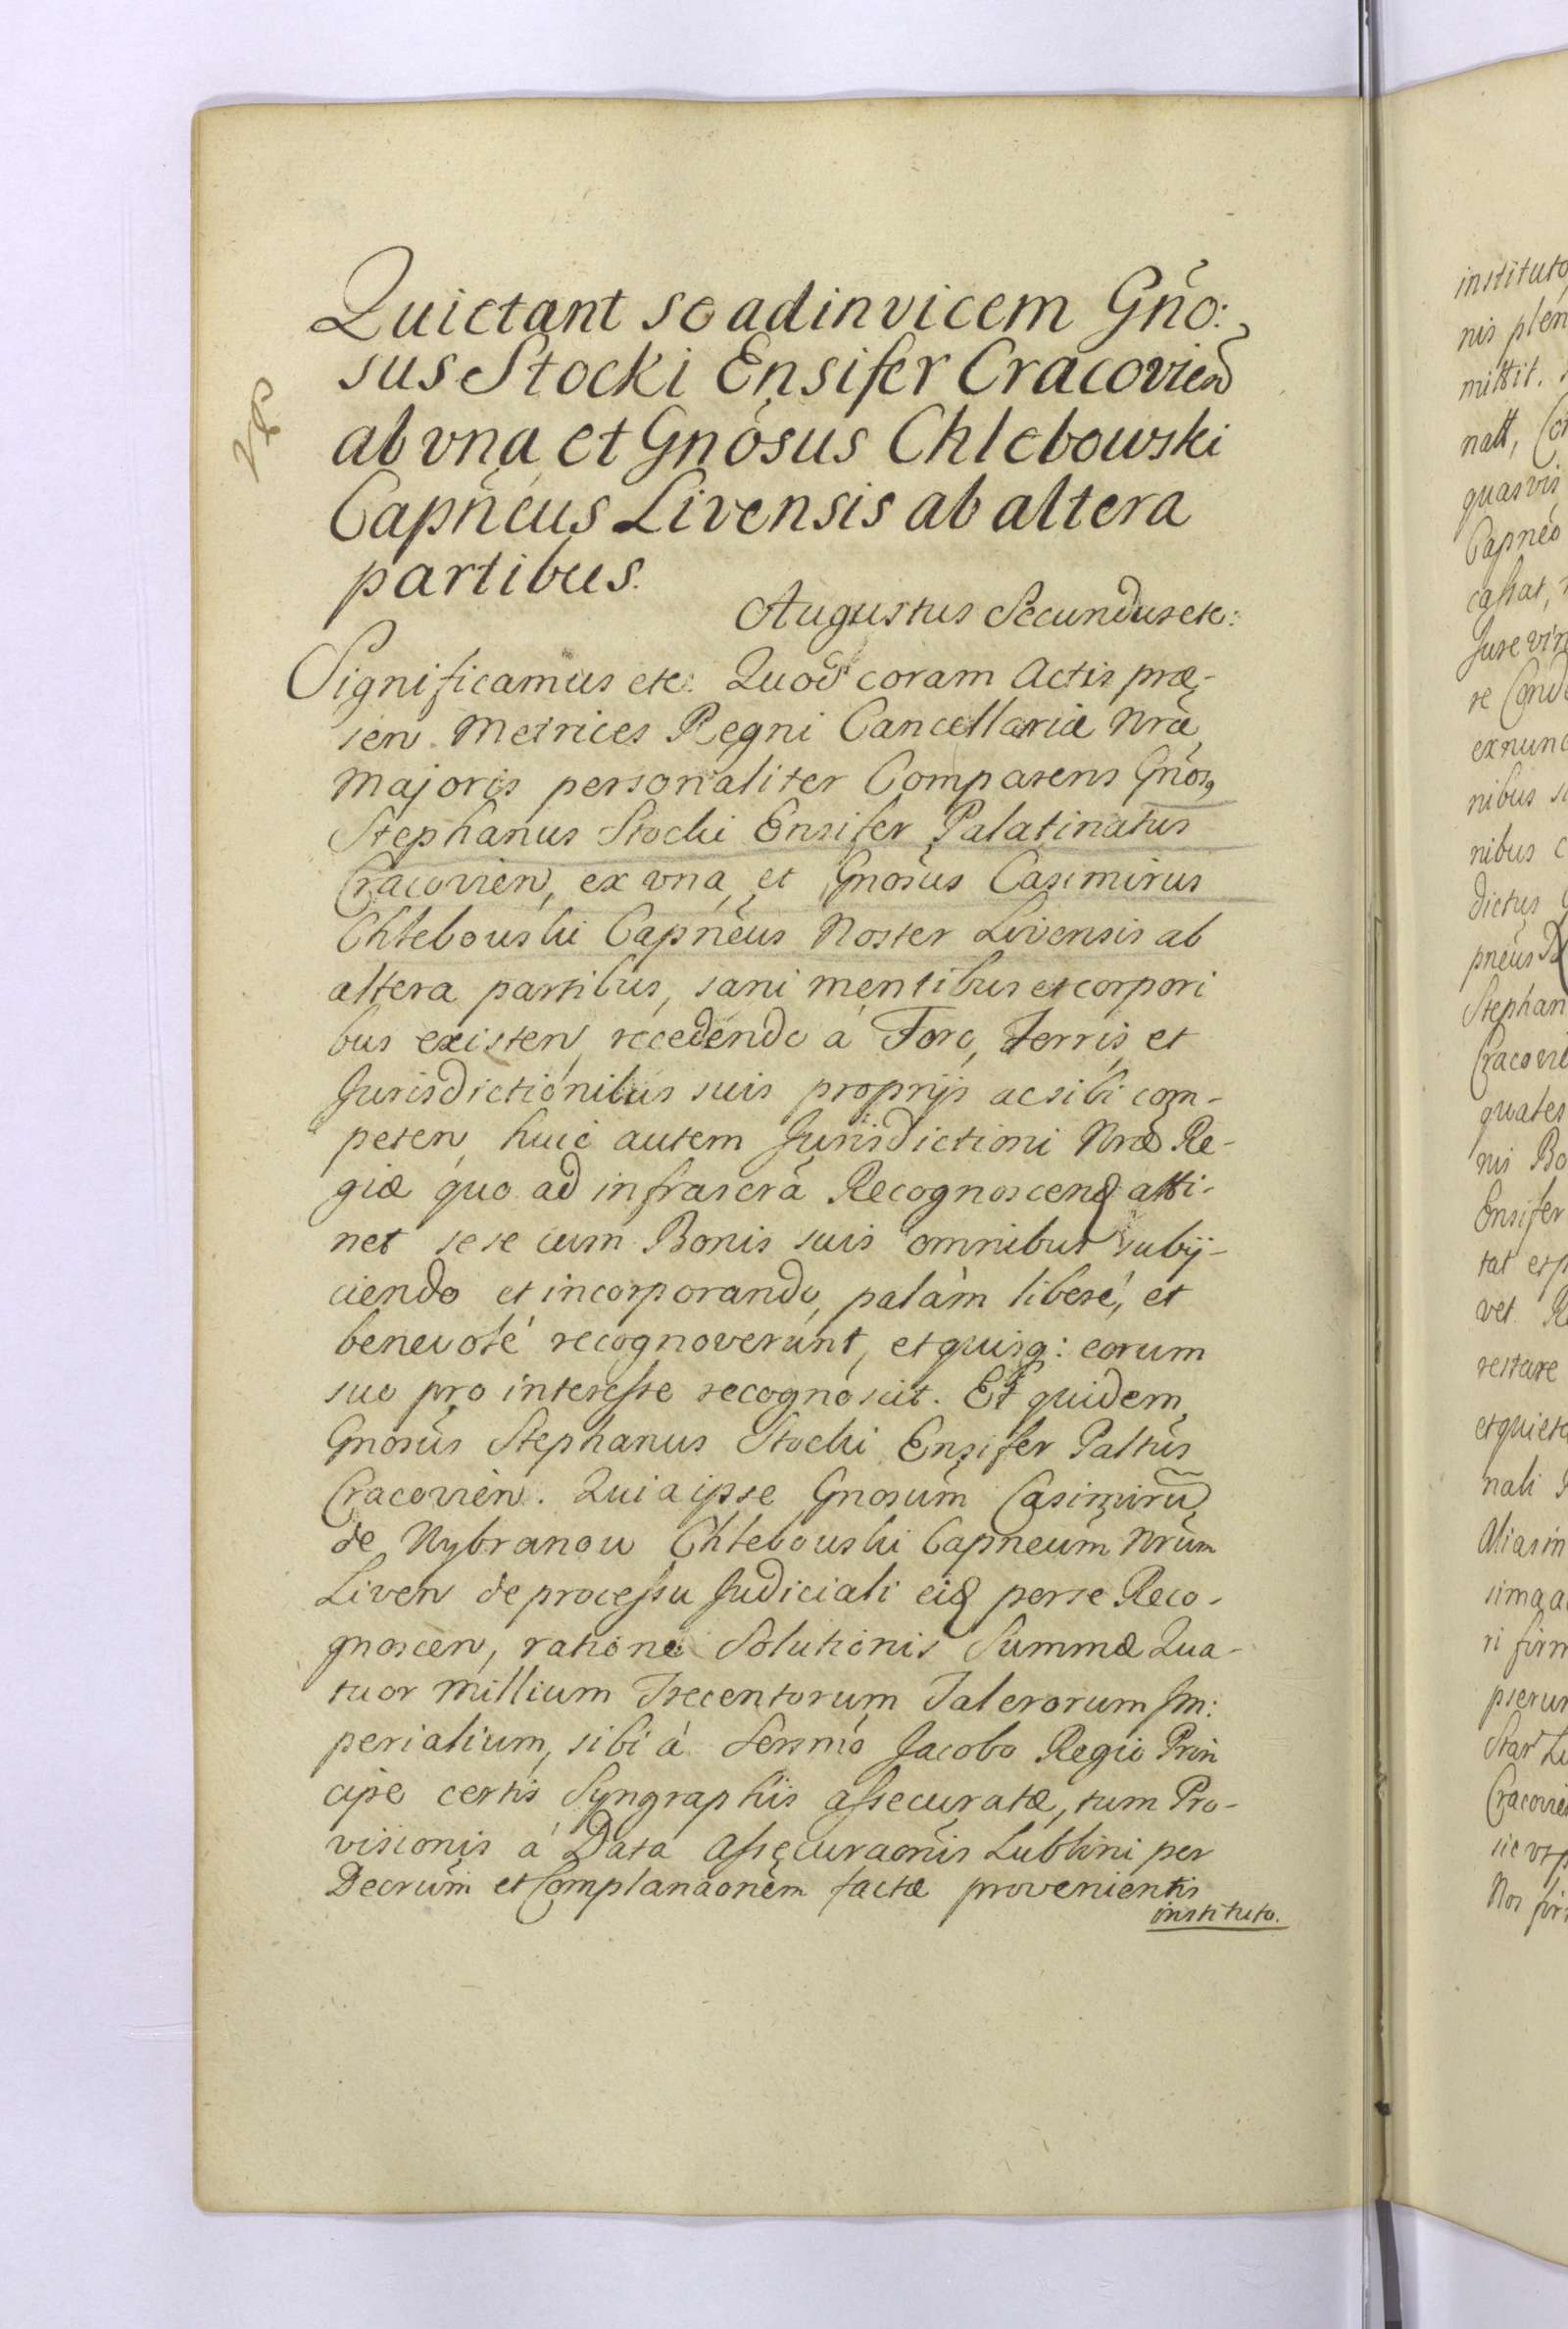 Quietant se adinvicem Gño:
sus Stocki Ensifer Cracovien
ab vna et Gnosus Chlebowski
Capñeus Livensis ab altera
partibus.
Augustus Secundus etc:
Significamus etc: Quod coram Actis præ-
sen. Metrices Regni Cancellariæ Nræ
Majoris personaliter Comparens Gños
Stephanus Stocki Ensifer Palatinatus
Cracovien, ex vna, et Gnosus Casimirus
Chlebowski Capñeus Noster Livensis ab
altera partibus, sani mentibus et corpori
bus existen, recedendo à Foro, Terris, et
Jurisdictionibus suis proprijs ac sibi com-
peten, huic autem Jurisdictioni Nræ Re-
giæ quo ad infrascra Recognoscend atti-
net sese cum Bonis suis omnibus subij-
ciendo et incorporando, palàm liberé, et
benevolé recognoverunt, et quisq: eorum
suo pro interesse recognoscit. Et quidem
Gnosus Stephanus Stocki Ensifer Paltus
Cracovien. Quia ipse Gnosum Casimirũ
de Nybranow Chlebowski Capneum Nrum
Liven de processu Judiciali eid per se Reco-
gnoscen, ratione Solutionis Summæ Qua-
tuor Millium Trecentorum Talerorum Im:
perialium, sibi à Sermo Jacobo Regio Prin
cipe certis Syngraphis assecuratæ, tum Pro-
visionis à Data Assecuraonis Lublini per
Decrum et Complanaonem factæ provenientis
instituto.
instituto
nis plen
mittit.
natt,
quasvis
Capneo
cassat,
Jure
re
ex nunc
nibus
nibus
dictus
pneus
Stephan
Cracovie
quates
nis Bo
Ensifer
tat et
vel
restare
et quiet
nali
Alias in
sima
ri firm
Cracovien
Nos